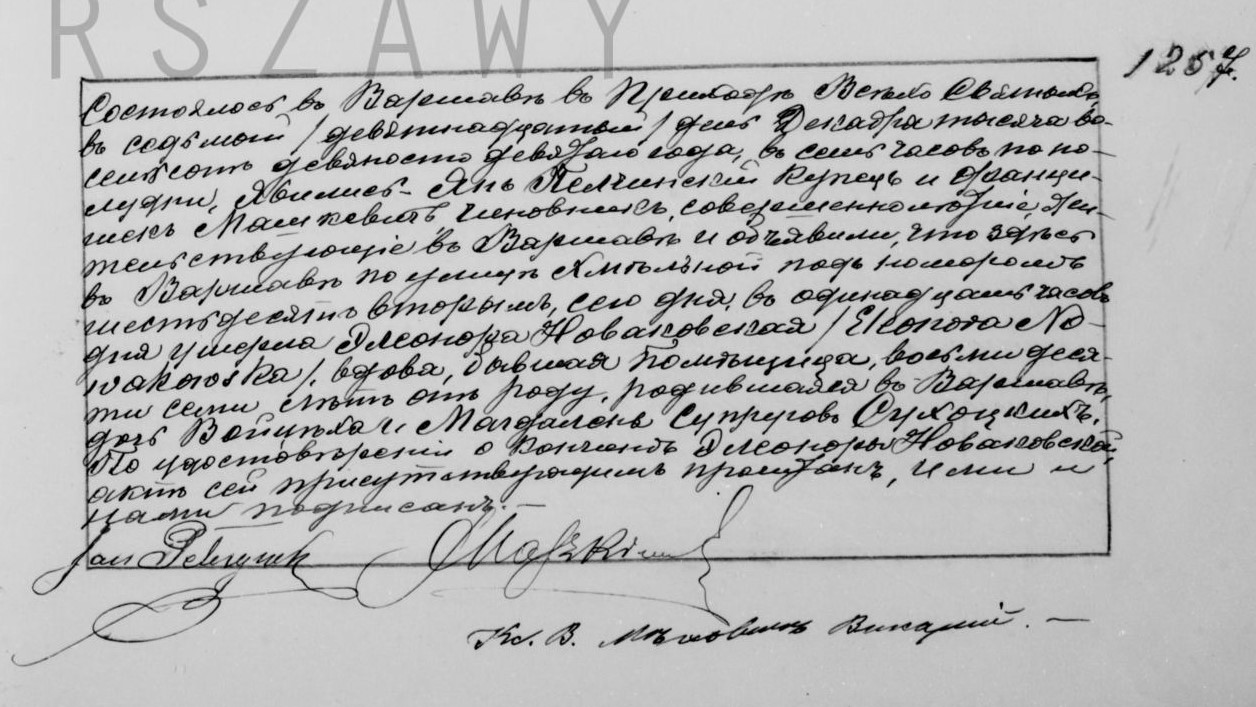 RSZAWY
1257.
Состоялось въ Варшавѣ въ Приходѣ Всѣхъ Святыхъ,
въ седьмой /девятнадцатый/ день Декабря тысяча во-
семьсотъ девяносто девятаго года, въ семь часовъ по по-
лудни, Явились Янъ Пельчинскій Купецъ и Францы-
шекъ Машкевичъ Чиновникъ, совершеннолѣтніе, Жи-
тельствующіе въ Варшавѣ и объявили, что здѣсь
въ Варшавѣ по улицѣ Хмѣльной подъ номеромъ
шестьдесятъ вторымъ, сего дня, въ одинадцать часовъ
дня умерла Элеонора Новаковская /Eleonora No-
wakowska/, вдова, бывшая Помѣщица, восьмидеся-
ти семи лѣтъ отъ роду, родившаяся въ Варшавѣ,
дочь Войцѣха и Магдалены Супруговъ Сухоцкихъ.
По удостовѣреніи о кончинѣ Элеоноры Новаковской,
актъ сей присутствующимъ прочитанъ, ими и
нами подписанъ.—
Jan
Кс. В. Викарій.—